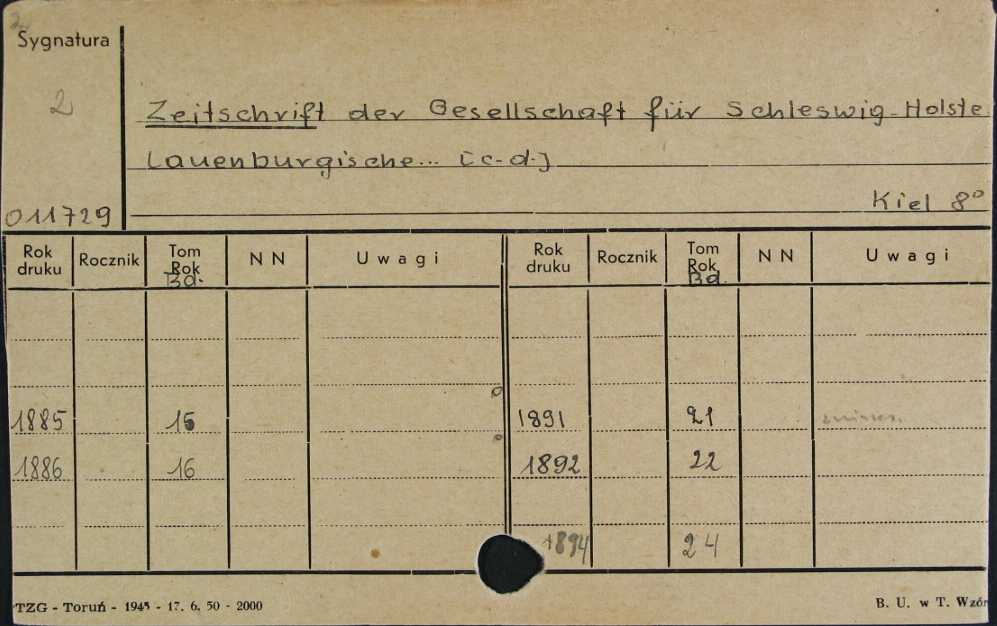 2
Sygnatura
2
Zeitschrift der Gesellschaft für Schleswig-Holste
Lauenburgische... [c-d-]
Kiel 8°
011729
Rok druku Rocznik Tom Rok Bd. NN Uwagi Rok druku Rocznik Tom Rok Bd. NN Uwagi
1885 15 1891 21
1886 16 1892 22
1894 24
TZG - Toruń - 1945 - 17. 6. 50 - 2000 B. U. w T. Wzór